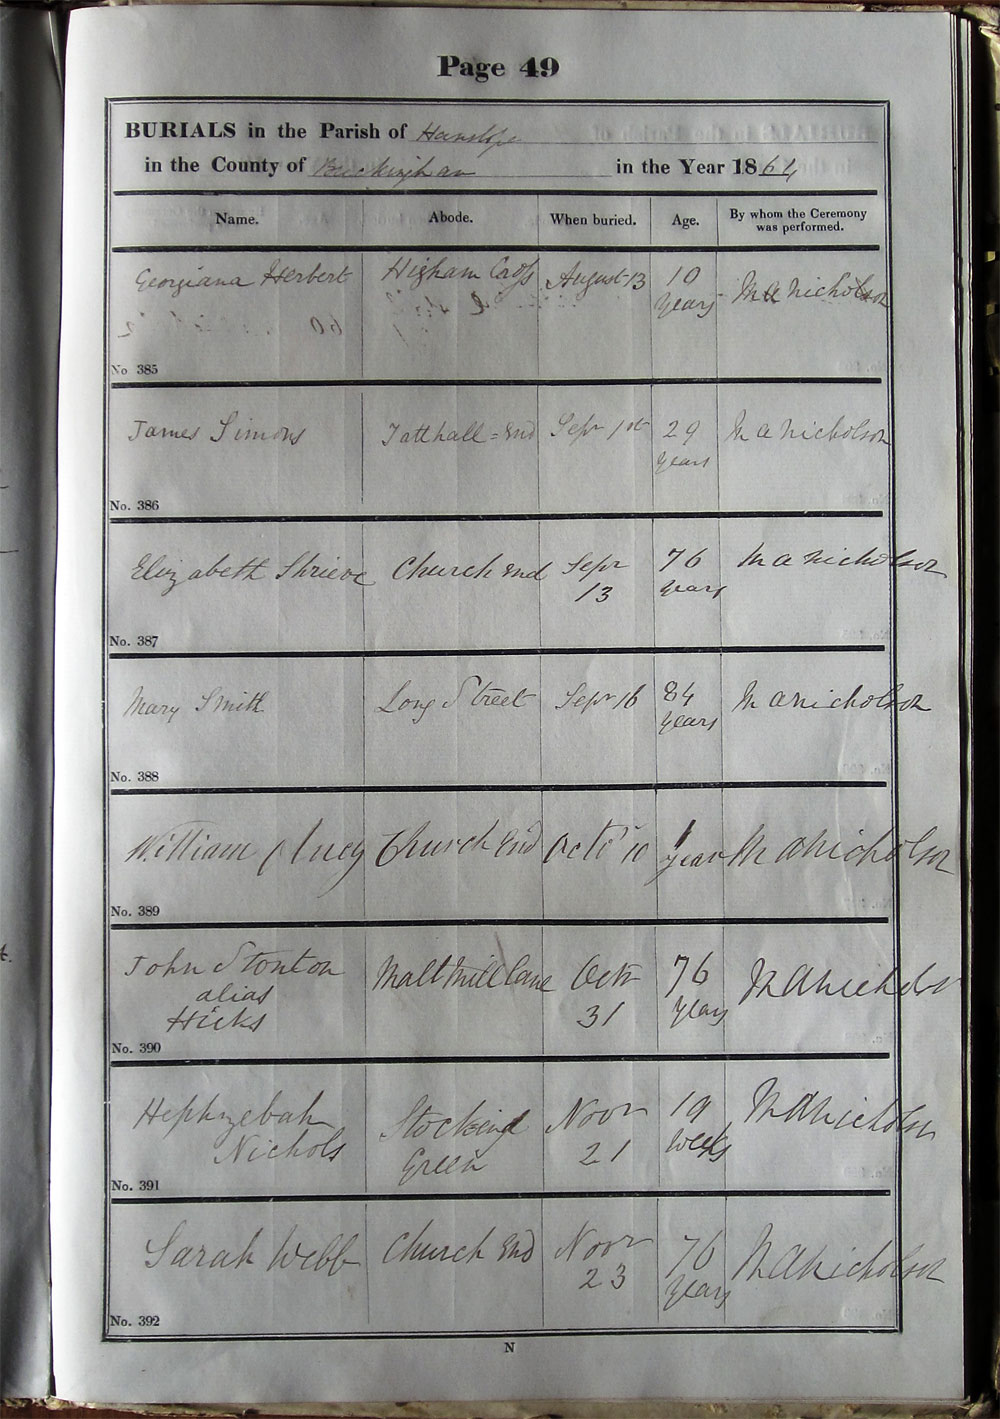 Page 49
BURIALS in the Parish of Hanslope
in the County of Buckingham in the Year 1864
Name. Abode. When buried. Age. By whom the Ceremony was performed.
Georgiana Herbert Higham Cross August 13 10 years M A Nicholson
No 385
James Simons Tatthall=End Sepr 1st 29 years M A Nicholson
No. 386
Elizabeth Shrieve Church End Sepr 13 76 years M A Nicholson
No. 387
Mary Smith Long Street Sepr 16 84 years M A Nicholson
No. 388
William Church End Octr 10 1 year M A Nicholson
No. 389
John Stonton alias Hicks Malt Mill Lane Octr 31 76 years M A Nicholson
No. 390
Hephzebah Nichols Stocking Green Novr 21 19 weeks M A Nicholson
No. 391
Sarah Webb Church End Novr 23 76 years M A Nicholson
No. 392
N